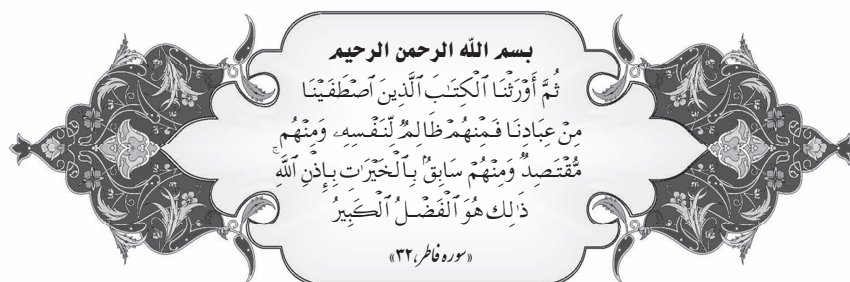 بسم الله الرحمن الرحيم
ثُمَّ أَوْرَثْنَا ٱلْكِتَـٰبَ ٱلَّذِينَ ٱصْطَفَيْنَا
مِنْ عِبَادِنَا فَمِنْهُمْ ظَالِمٌ لِّنَفْسِهِۦ وَمِنْهُم
مُّقْتَصِدٌ وَمِنْهُمْ سَابِقٌۢ بِٱلْخَيْرَٰتِ بِإِذْنِ ٱللَّهِ ۚ
ذَٰلِكَ هُوَ ٱلْفَضْلُ ٱلْكَبِيرُ
«سوره فاطر، ۳۲»